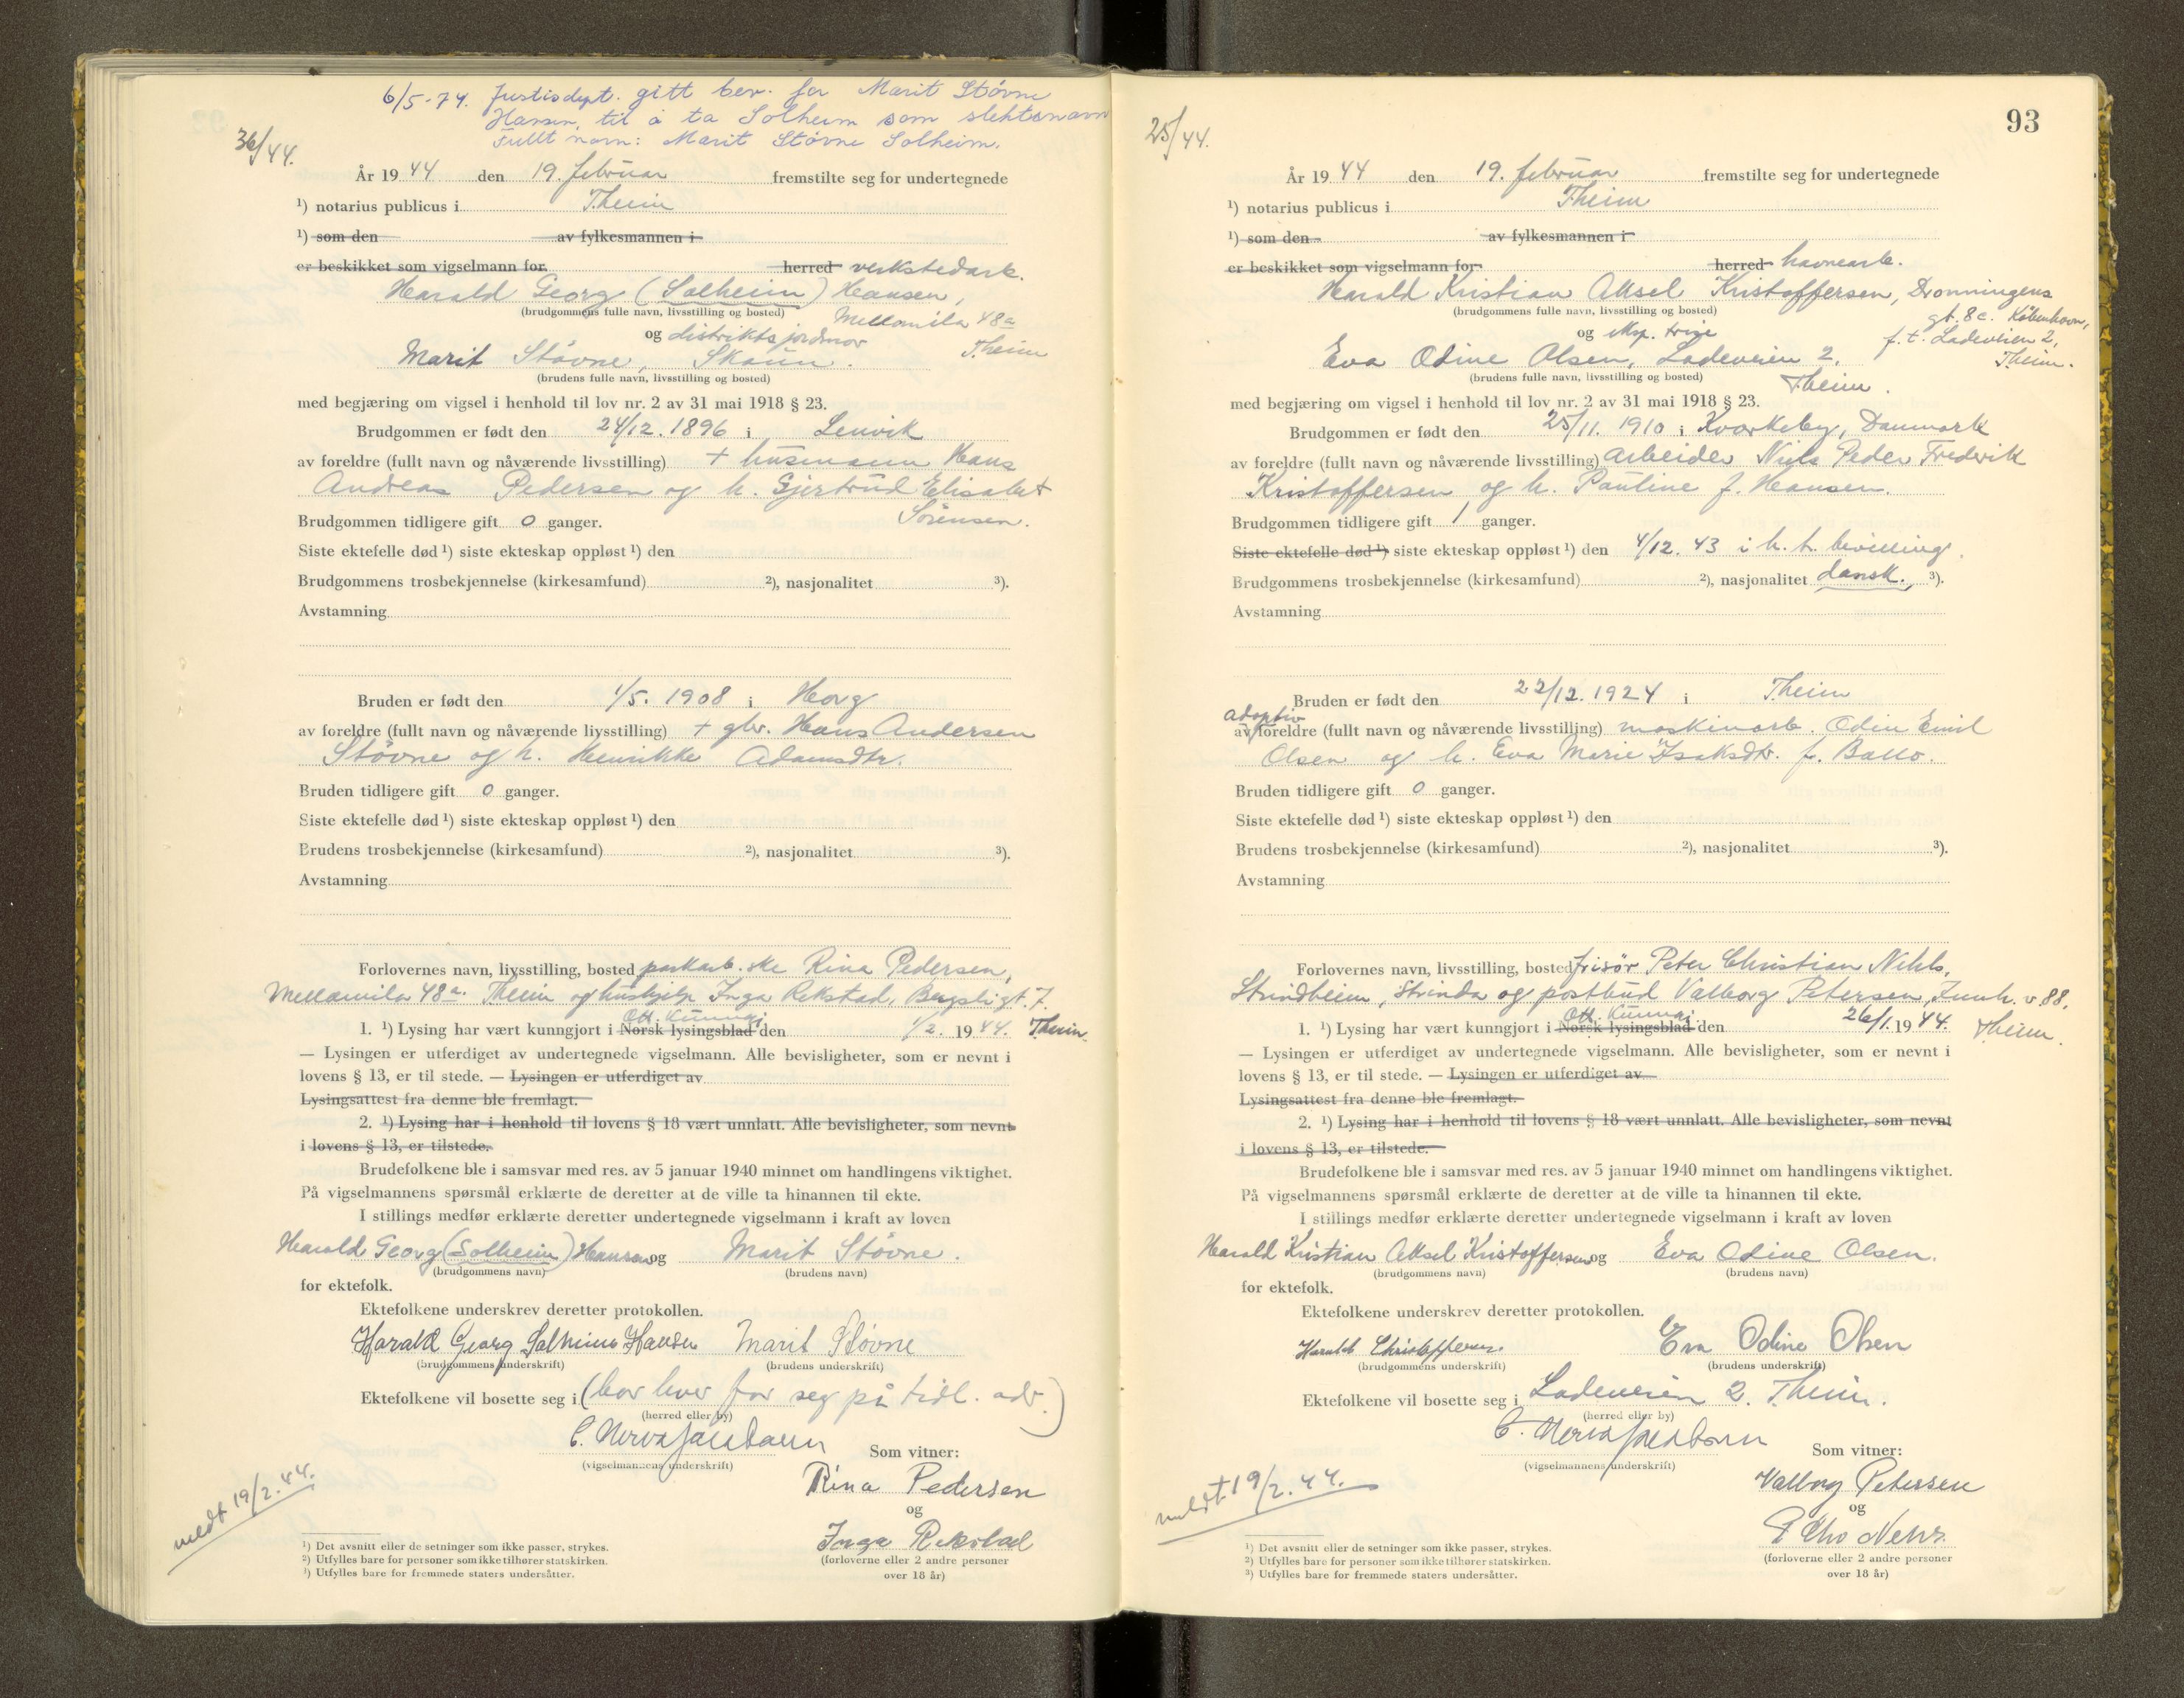 6/5-74. Justisdept. gitt bev. for Marit Støvne
Hansen til å ta Solheim som slektsnavn
Fullt navn: Marit Støvne Solheim.
36/44.
År 1944 den 19. februar fremstilte seg for undertegnede
¹) notarius publicus i Theim
¹) som den av fylkesmannen i
er beskikket som vigselmann for herred verkstedarb.
Harald Georg (Solheim) Hansen,
(brudgommens fulle navn, livsstilling og bosted) Mellomila 48a
og distriktsjordmor Theim
Marit Støvne, Skaun.
(brudens fulle navn, livsstilling og bosted)
med begjæring om vigsel i henhold til lov nr. 2 av 31 mai 1918 § 23.
Brudgommen er født den 24/12. 1896 i Lenvik
av foreldre (fullt navn og nåværende livsstilling) + husmann Hans
Andreas Pedersen og h. Gjertrud Elisabet
Sørensen.
Brudgommen tidligere gift 0 ganger.
Siste ektefelle død ¹) siste ekteskap oppløst ¹) den
Brudgommens trosbekjennelse (kirkesamfund) ²), nasjonalitet ³).
Avstamning
Bruden er født den 1/5. 1908 i Horg
av foreldre (fullt navn og nåværende livsstilling) + gbr. Hans Andersen
Støvne og h. Henrikke Adamsdtr.
Bruden tidligere gift 0 ganger.
Siste ektefelle død ¹) siste ekteskap oppløst ¹) den
Brudens trosbekjennelse (kirkesamfund) ²), nasjonalitet ³).
Avstamning
Forlovernes navn, livsstilling, bosted parkarb.ske Rina Pedersen,
Mellomila 48a. Theim og hushjelp Inga Rekstad, Bergsligt. 7.
Off. kunngj.
1. ¹) Lysing har vært kunngjort i Norsk lysingsblad den 1/2. 1944. Theim.
— Lysingen er utferdiget av undertegnede vigselmann. Alle bevisligheter, som er nevnt i
lovens § 13, er til stede. — Lysingen er utferdiget av
Lysingsattest fra denne ble fremlagt.
2. ¹) Lysing har i henhold til lovens § 18 vært unnlatt. Alle bevisligheter, som nevnt
i lovens § 13, er tilstede.
Brudefolkene ble i samsvar med res. av 5 januar 1940 minnet om handlingens viktighet.
På vigselmannens spørsmål erklærte de deretter at de ville ta hinannen til ekte.
I stillings medfør erklærte deretter undertegnede vigselmann i kraft av loven
Harald Georg (Solheim) Hansen og Marit Støvne.
(brudgommens navn) (brudens navn)
for ektefolk.
Ektefolkene underskrev deretter protokollen.
Harald Georg Solheim Hansen Marit Støvne
(brudgommens underskrift) (brudens underskrift)
Ektefolkene vil bosette seg i (bor hver for seg på tidl. adr.)
(herred eller by)
(vigselmannens underskrift) Som vitner:
Rina Pedersen
og
Inga Rekstad
(forloverne eller 2 andre personer
over 18 år)
meldt 19/2.44.
¹) Det avsnitt eller de setninger som ikke passer, strykes.
²) Utfylles bare for personer som ikke tilhører statskirken.
³) Utfylles bare for fremmede staters undersåtter.
93
25/44.
År 1944 den 19. februar fremstilte seg for undertegnede
¹) notarius publicus i Theim
¹) som den av fylkesmannen i
er beskikket som vigselmann for herred havnearb.
Harald Kristian Aksel Kristoffersen, Dronningens
(brudgommens fulle navn, livsstilling og bosted) gt. 8c. København,
og eksp. trise f. t. Ladeveien 2,
Eva Odine Olsen, Ladeveien 2. Theim.
(brudens fulle navn, livsstilling og bosted) Theim.
med begjæring om vigsel i henhold til lov nr. 2 av 31 mai 1918 § 23.
Brudgommen er født den 25/11. 1910 i Kværkeby, Danmark
av foreldre (fullt navn og nåværende livsstilling) arbeider Niels Peder Frederik
Kristoffersen og h. Pauline f. Hansen.
Brudgommen tidligere gift 1 ganger.
Siste ektefelle død ¹) siste ekteskap oppløst ¹) den 4/12. 43 i h. t. bevilling.
Brudgommens trosbekjennelse (kirkesamfund) ²), nasjonalitet dansk. ³).
Avstamning
Bruden er født den 22/12. 1924 i Theim
adoptiv
av foreldre (fullt navn og nåværende livsstilling) maskinarb. Odin Emil
Olsen og h. Eva Marie Isaksdtr. f. Ballo.
Bruden tidligere gift 0 ganger.
Siste ektefelle død ¹) siste ekteskap oppløst ¹) den
Brudens trosbekjennelse (kirkesamfund) ²), nasjonalitet ³).
Avstamning
Forlovernes navn, livsstilling, bosted frisør Peter Christian Nehls,
Strindheim, Strinda og postbud Valborg Petersen, Innh. v. 88,
Off. kunngj.
1. ¹) Lysing har vært kunngjort i Norsk lysingsblad den 26/1. 1944. Theim.
— Lysingen er utferdiget av undertegnede vigselmann. Alle bevisligheter, som er nevnt i
lovens § 13, er til stede. — Lysingen er utferdiget av
Lysingsattest fra denne ble fremlagt.
2. ¹) Lysing har i henhold til lovens § 18 vært unnlatt. Alle bevisligheter, som nevnt
i lovens § 13, er tilstede.
Brudefolkene ble i samsvar med res. av 5 januar 1940 minnet om handlingens viktighet.
På vigselmannens spørsmål erklærte de deretter at de ville ta hinannen til ekte.
I stillings medfør erklærte deretter undertegnede vigselmann i kraft av loven
Harald Kristian Aksel Kristoffersen og Eva Odine Olsen.
(brudgommens navn) (brudens navn)
for ektefolk.
Ektefolkene underskrev deretter protokollen.
Harald Christoffersen Eva Odine Olsen
(brudgommens underskrift) (brudens underskrift)
Ektefolkene vil bosette seg i Ladeveien 2. Theim.
(herred eller by)
(vigselmannens underskrift) Som vitner:
Valborg Petersen
og
(forloverne eller 2 andre personer
over 18 år)
meldt 19/2.44.
¹) Det avsnitt eller de setninger som ikke passer, strykes.
²) Utfylles bare for personer som ikke tilhører statskirken.
³) Utfylles bare for fremmede staters undersåtter.